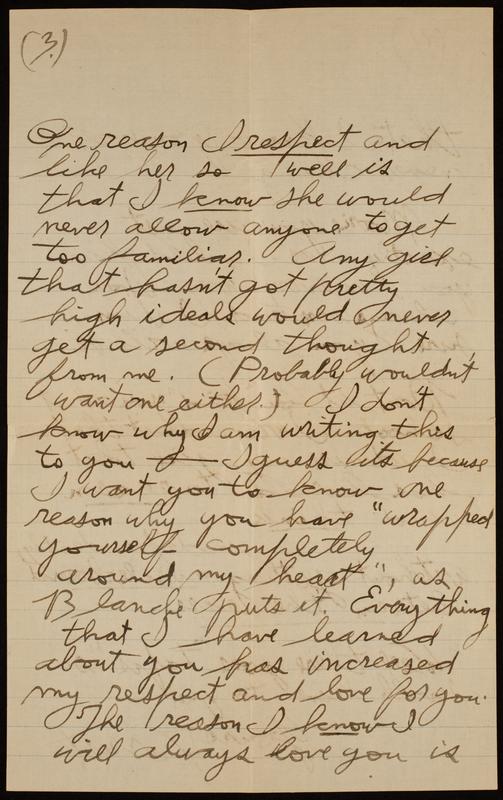 (3.)
One reason I respect and
like her so well is
that I know she would
never allow anyone to get
too familiar. Any girl
that hasn't got pretty
high ideals would never
get a second thought
from me. (Probably wouldn't
want one either.) I don't
know why I am writing this
to you — I guess its because
I want you to know one
reason why you have "wrapped
yourself completely
around my heart", as
Blanche puts it. Everything
that I have learned
about you has increased
my respect and love for you.
The reason I know I
will always love you is